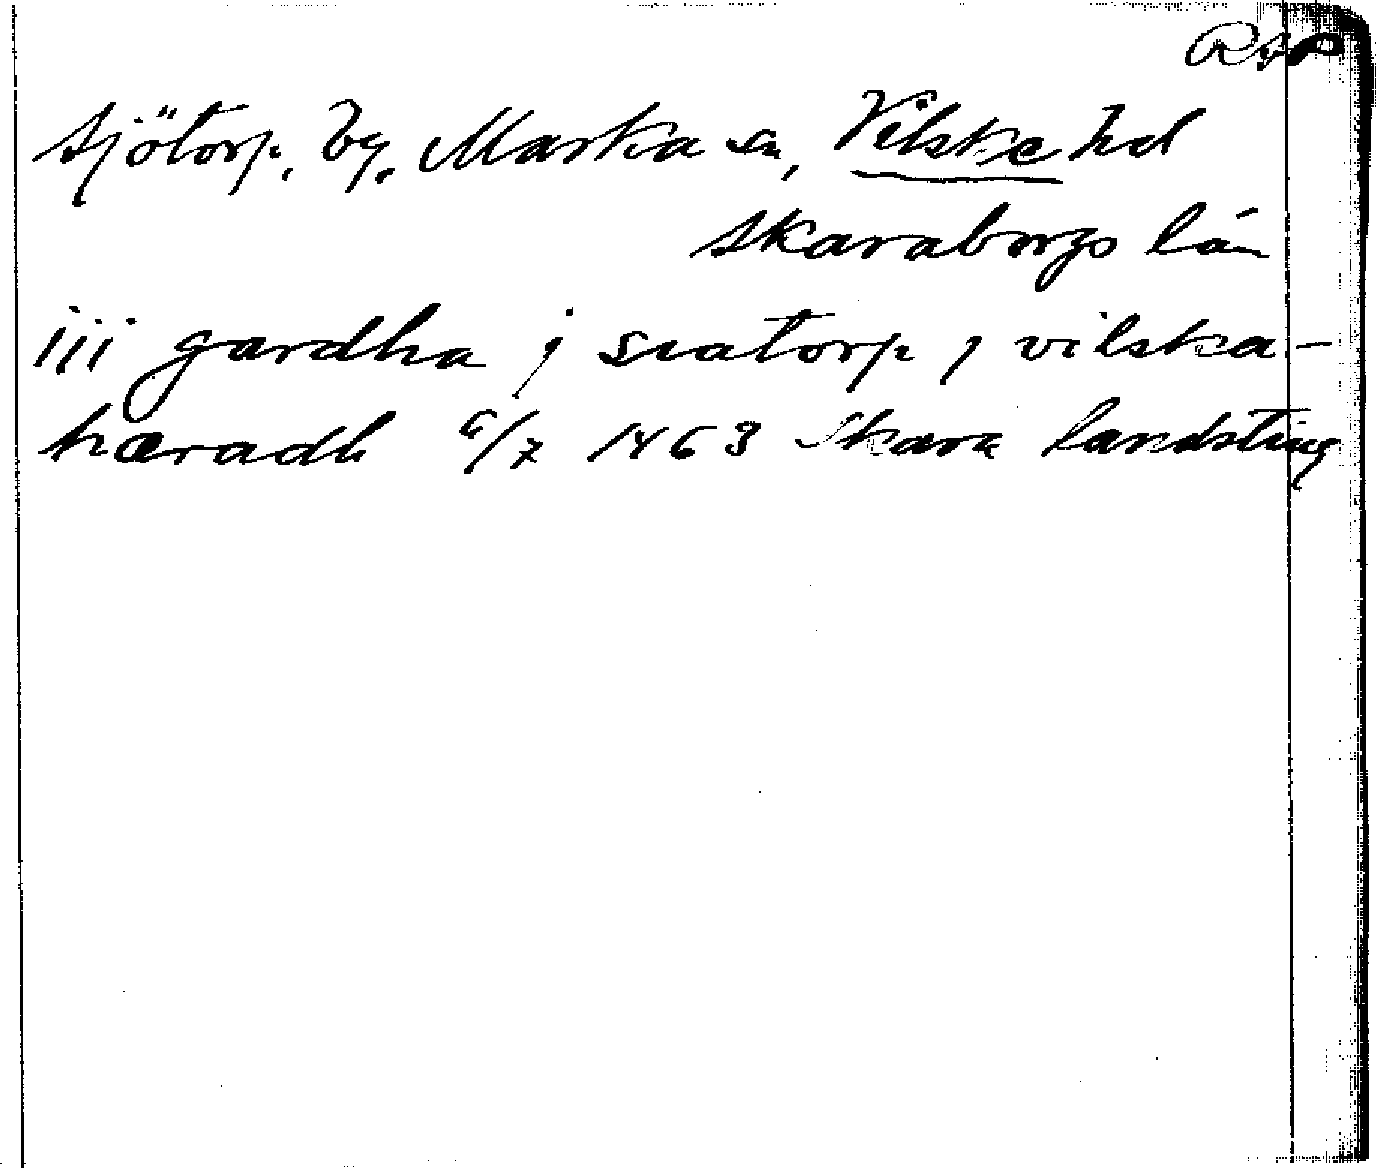 RAP
Sjötorp, by, Marka sn, Vilske hd
Skaraborgs län
iii gardha j siatorp j vilska-
hæradh 6/7 1463 Skara landsting